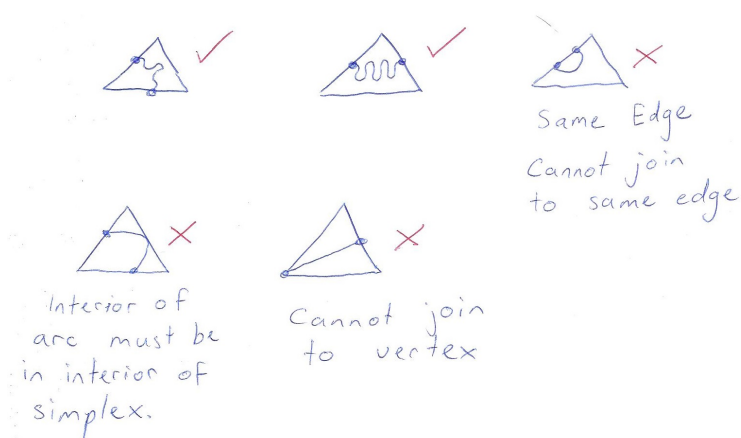 Same Edge
Cannot join
to same edge
Interior of
arc must be
in interior of
simplex.
Cannot join
to vertex